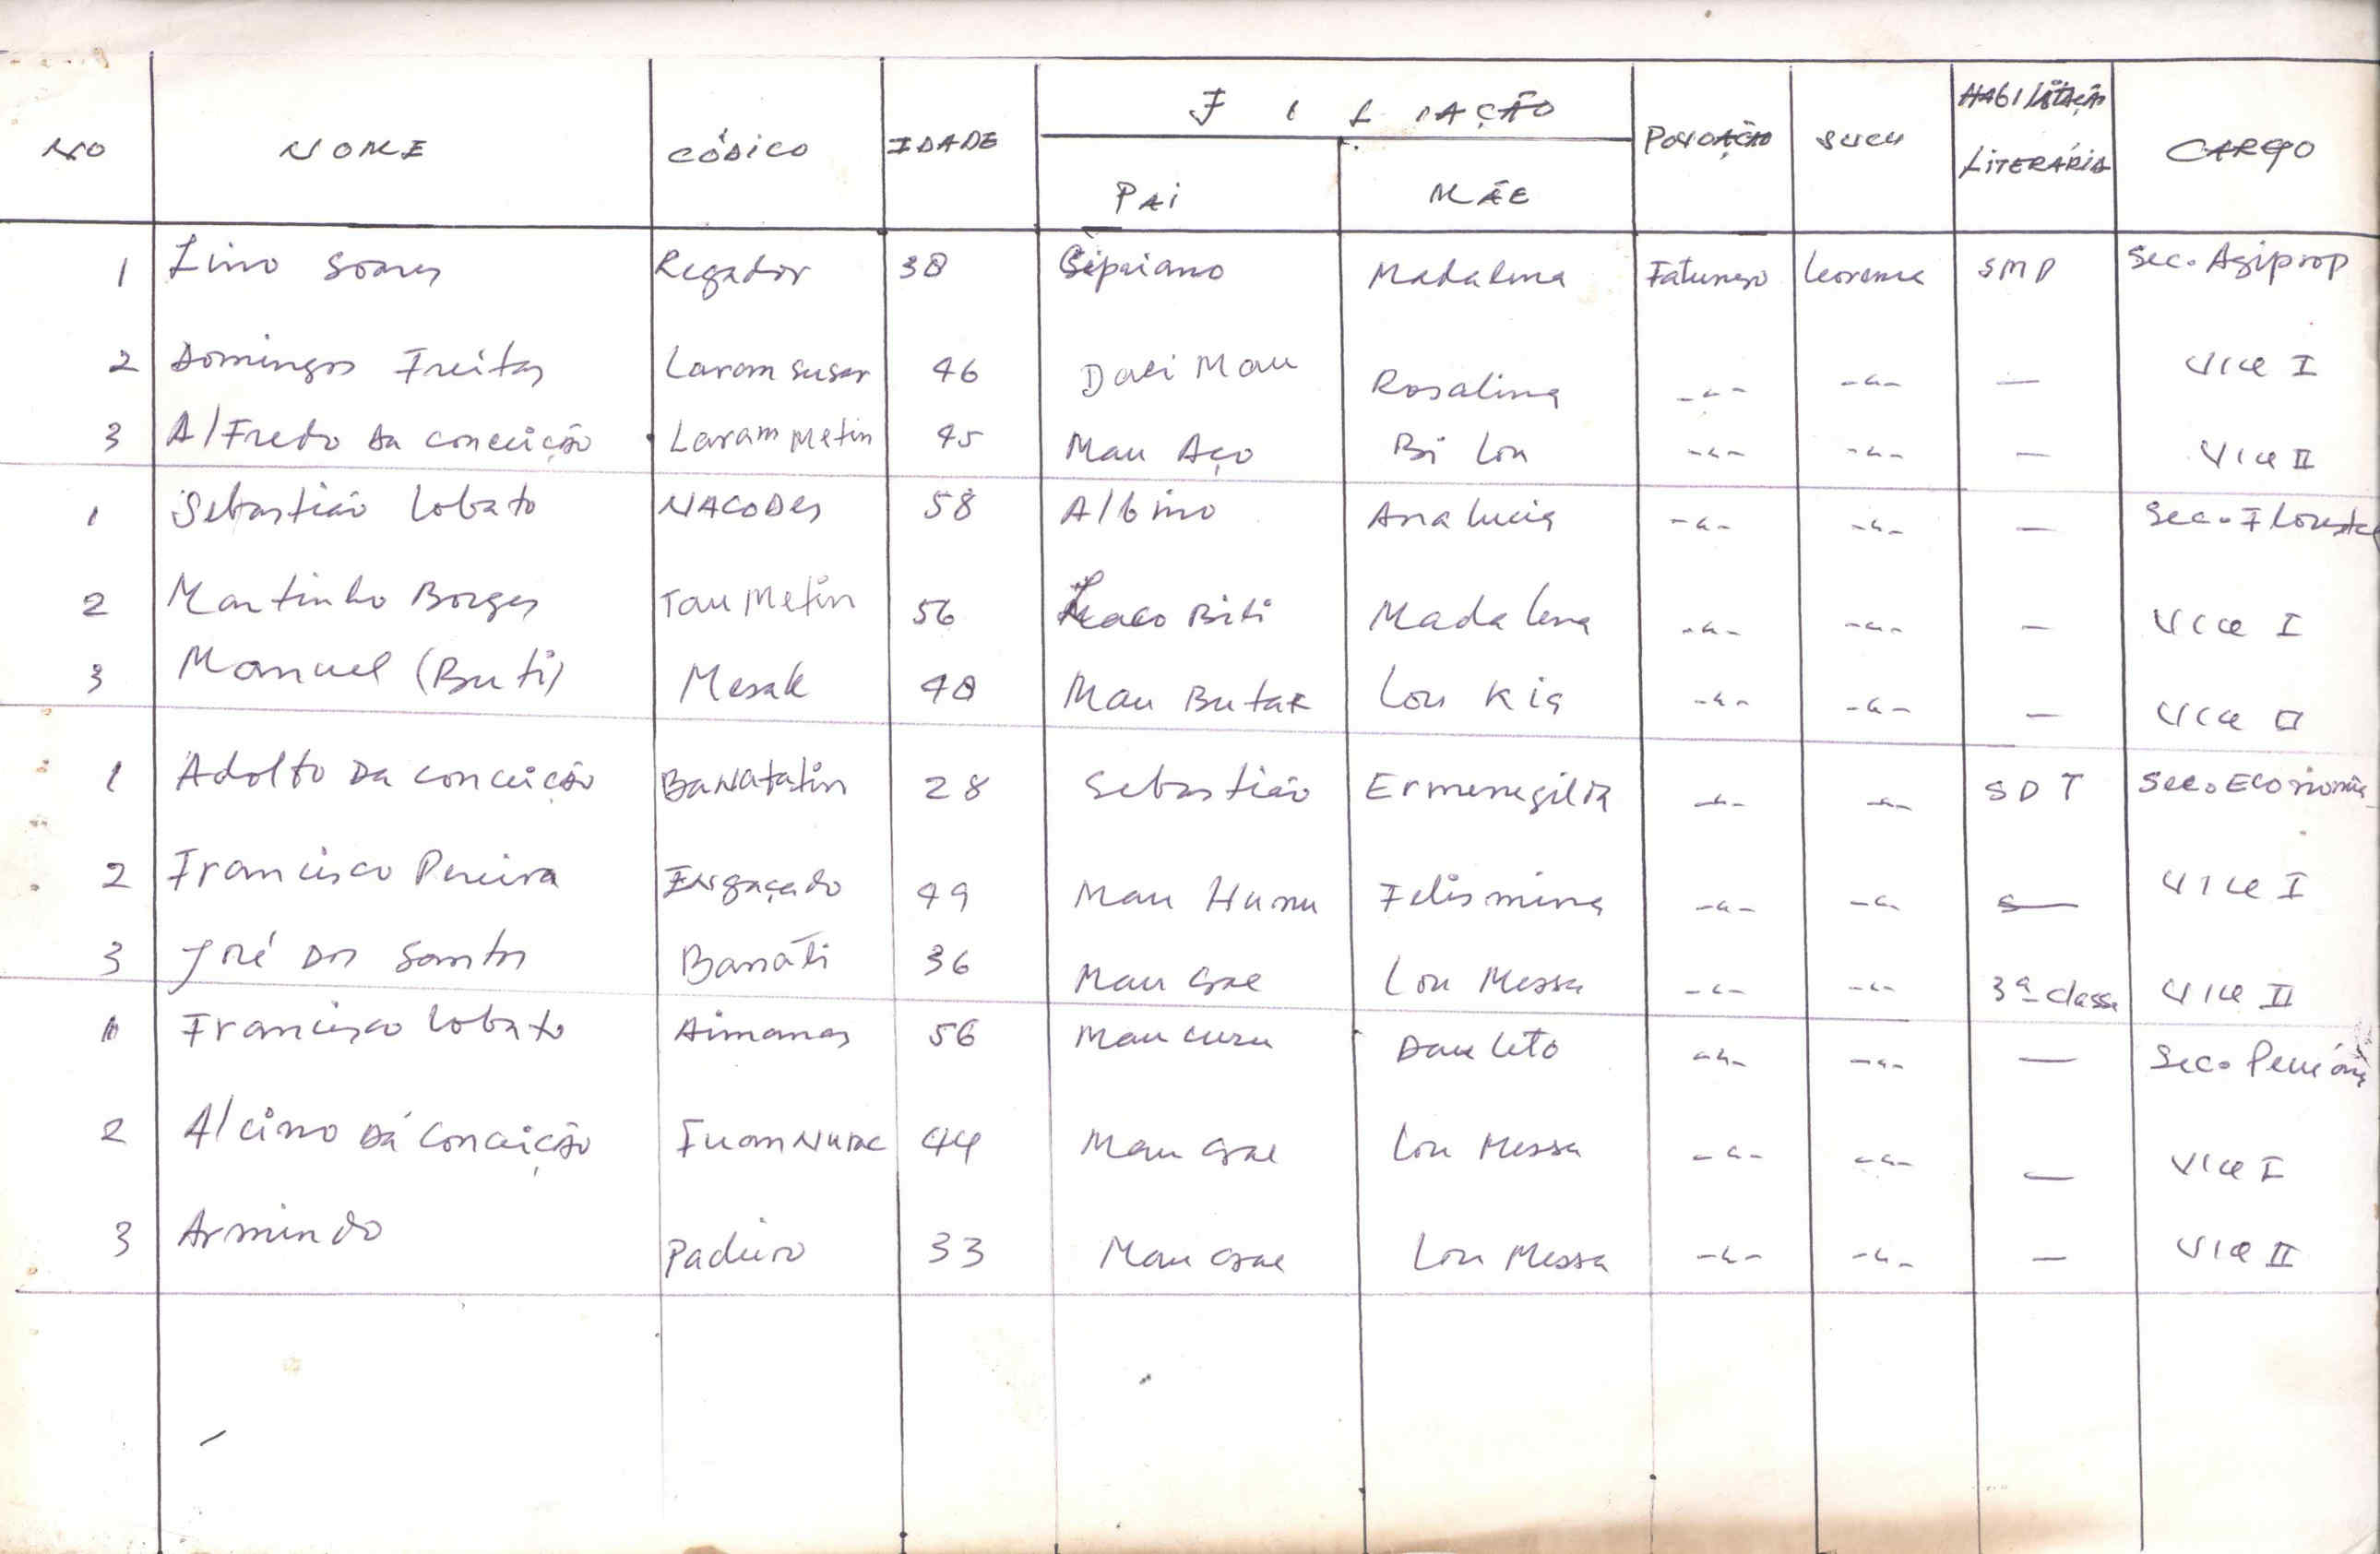 NO NOME CÓDICO IDADE FILIAÇÃO POVOAÇÃO SUCU HABILITAÇÃO LITERÁRIA CARGO
PAI MÃE
1 Lino Soares Regador 38 Cipriano Madalena Fatunero Leorema SMP Sec. Agiprop
2 Domingos Freitas Laram susar 46 Dali Mau Rosalina -"- -"- — Vice I
3 Alfredo Da Conceição Laram Metin 45 Mau Aço Bi Lou -"- -"- — Vice II
1 Sebastião Lobato NACODES 58 Albino Ana Lucia -"- -"- — Sec. Floresta
2 Martinho Borges Tau Metin 56 Laco Biti Madalena -"- -"- — Vice I
3 Manuel (Buti) Mesak 48 Mau Butak Lou Kia -"- -"- — Vice II
1 Adolfo Da Conceição BaNatatin 28 Sebastião Ermenegilda -"- -"- SDT Sec. Economia
2 Francisco Pereira Engaçado 49 Mau Hunu Felismina -"- -"- — Vice I
3 José Dos Santos Banáti 36 Mau Lou Messa -"- -"- 3ª classe Vice II
1 Francisco Lobato Aimanas 56 Mau curu Dau Leto -"- -"- — Sec.
2 Alcino Da Conceição 44 Mau Lou Messa -"- -"- — Vice I
3 Armindo Padeiro 33 Mau Lou Messa -"- -"- — Vice II